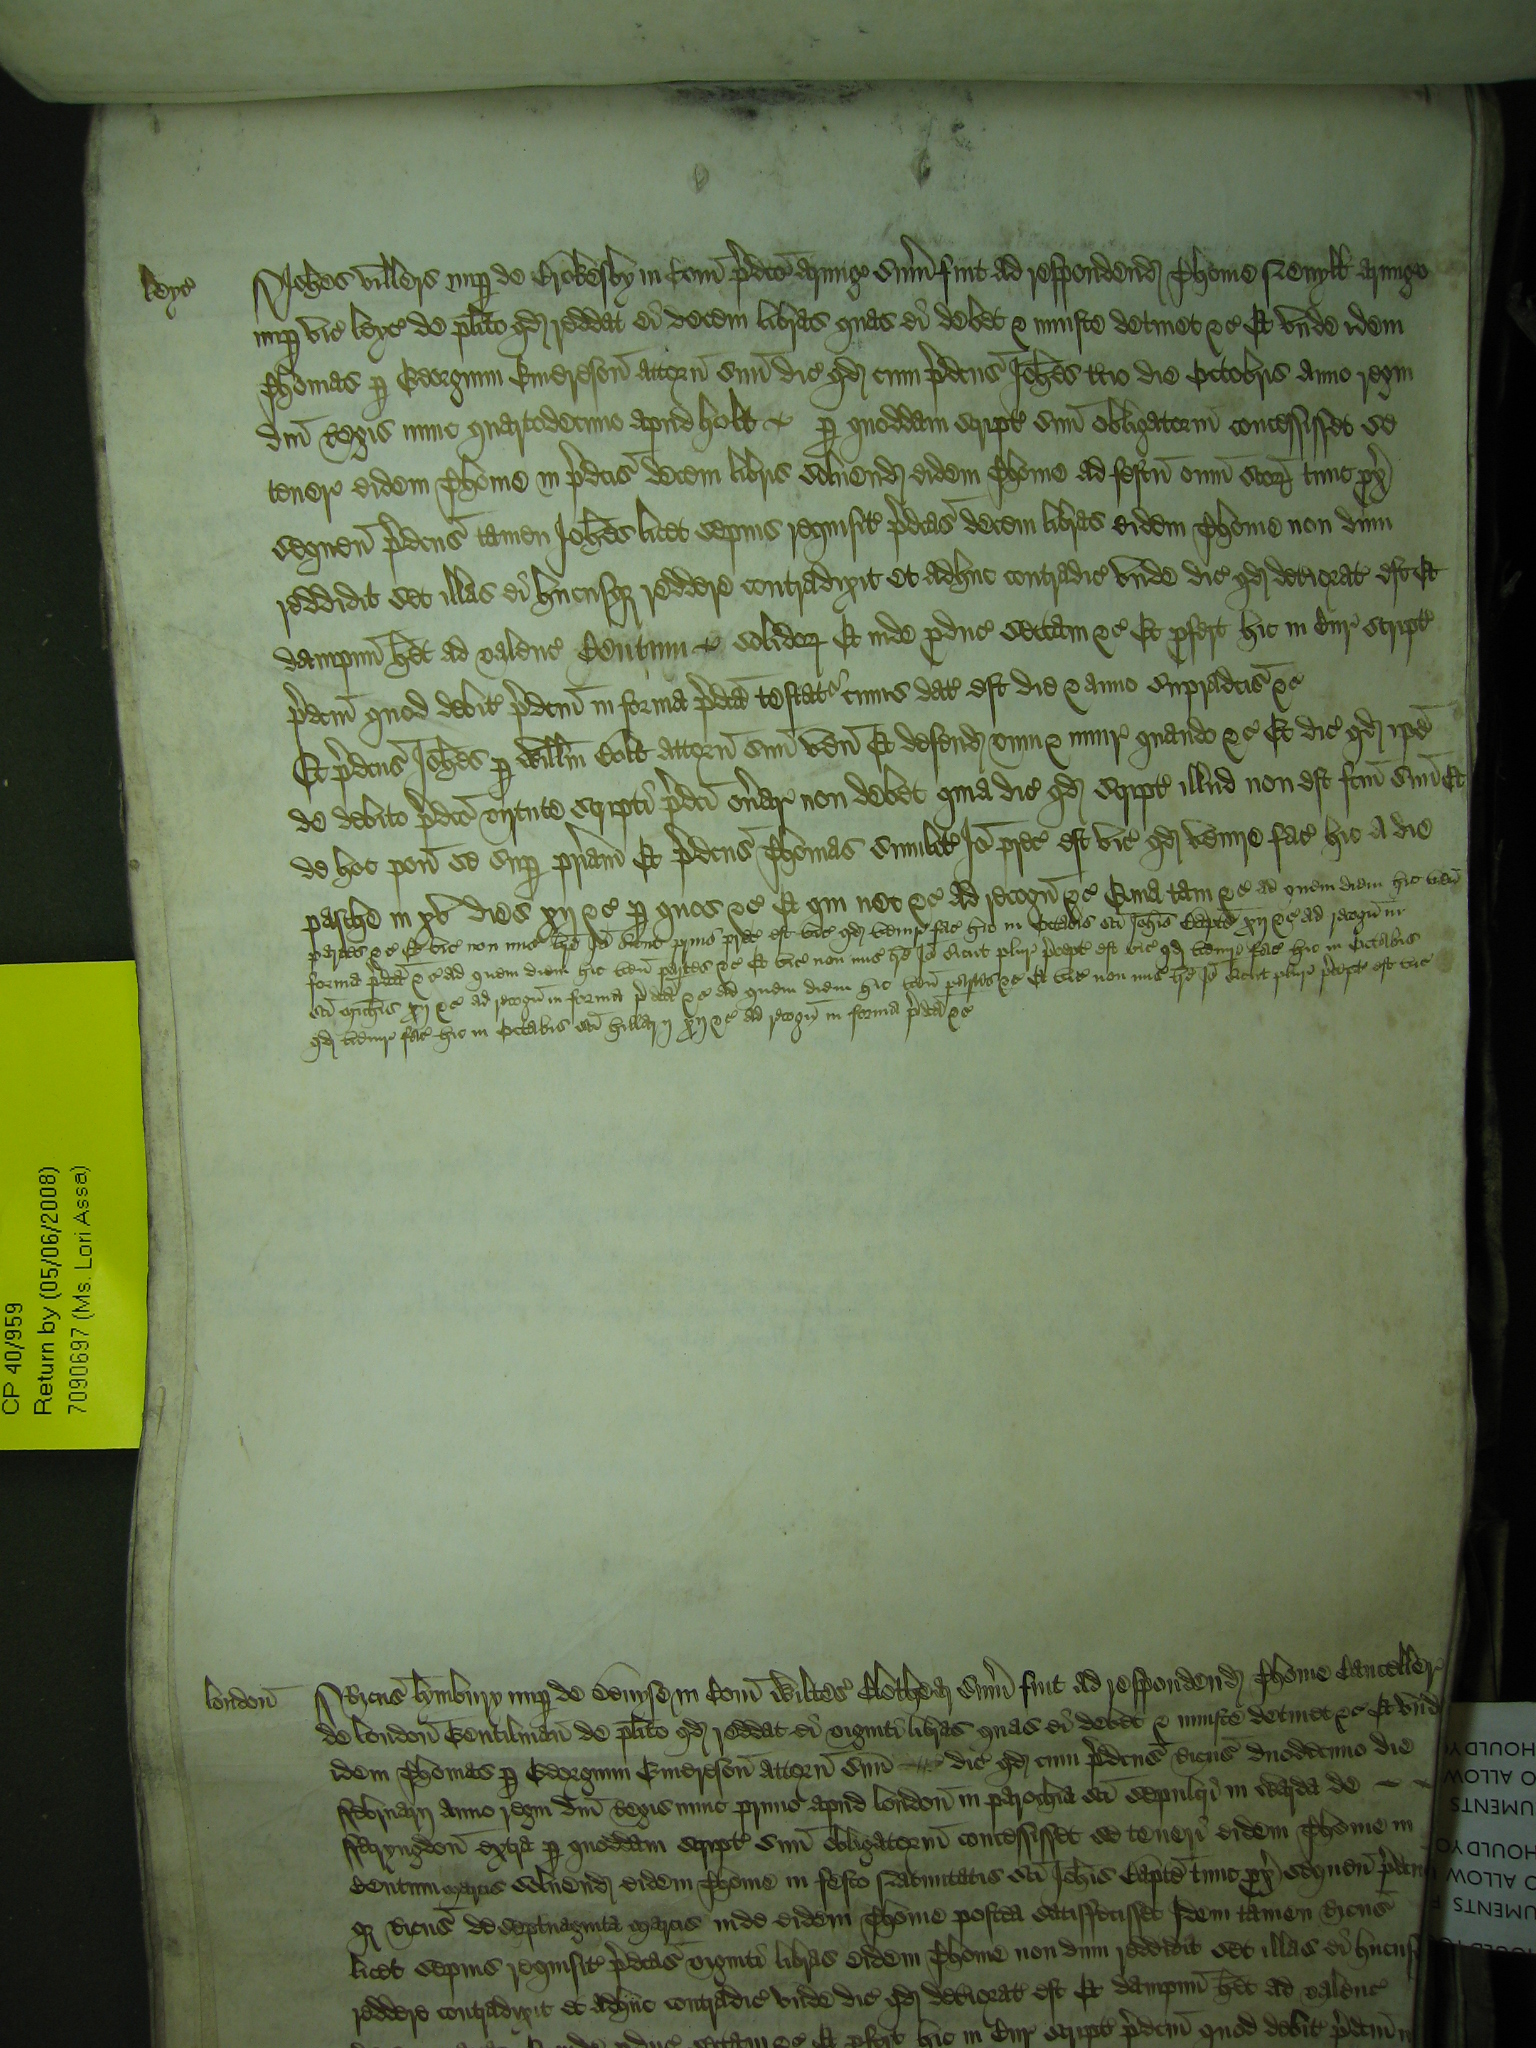 leyc
Johes villers nup de Brokesby in Com pdco armig sum fuit ad respondend Thome armigo
nup vic leyc de plito qd reddat ei decem libras quas ei debet & iniuste detinet &c Et unde idem
Thomas p Georgium Emereson attorn suu dic qd cum pdcus Johes die Octobris anno regni
dni Regis nunc quartodecimo apud holt p quoddam script suu obligatorm concessisset se
teneri eidem Thome in pdcis decem libris solvend eidem Thome ad festu omi scor tunc px
sequen pdcus tamen Johes licet sepius requisit pdcas decem libras eidem Thome non dum
reddidit set illas ei hucusq reddere contradixit et adhuc contradic unde dic qd deteriorat est Et
dampnu het ad valenc Centum solidor Et inde pduc sectam &c Et pfert hic in Cur script
pdcm quod debit pdcm in forma pdca testat cuius dat est die & anno supradcis &c
Et pdcus Johes p Willm Colt attorn suu ven Et defend vim & iniur quando &c Et dic qd ipe
de debito pdco virtute scripti pdci onari non debet quia dic qd script illud non est fcm suu Et
de hoc pon se sup priam Et pdcus Thomas similit Io prec est vic qd venire fac hic a die
pasche in xv dies xij &c p quos &c Et qui nec &c ad recogn &c Quia tam &c ad quem diem hic ven
partes &c Et vic non mis bre Io sicut prius prec est vic qd venire fac hic in Octabis sci Johis Bapte xij &c ad recogn in
forma pdca &c ad quem diem hic ven partes &c Et vic non mis bre Io sicut plur precept est vic qd venire fac hic in Octabis
sci Michis xij &c ad recogn in forma pdca &c ad quem diem hic ven partes &c Et vic non mis bre Io sicut plur precept est vic
qd venire fac hic in Octabis sci hillarij xij &c ad recogn in forma pdca &c
london
Ricus lymbury nup de in Com Wiltes Clothear sum fuit ad respondend Thome Caunceller
de london Gentilman de plito qd reddat ei viginti libras quas ei debet & iniuste detinet &c Et und
idem Thomas p Georgium Emereson attorn suu dic qd cum pdcus Ricus duodecimo die
ffebruarij anno regni dni Regis nunc primo apud london in parochia sci Sepulcri in Warda de
ffaryngdon extra p quoddam script suu obligatorm concessisset se teneri eidem Thome in
Centum marcis solvend eidem Thome in festo Nativitatis sci Johis Bapte tunc px sequen
q Ricus de septuaginta marcis inde eidem Thome postea satisfecisset Idem tamen Ricus
licet sepius requisit pdcas viginti libras eidem Thome non dum reddidit set illas ei hucusq
reddere contradixit et adhuc contradic unde dic qd deteriorat est Et dampnu het ad valenc
sectam &c Et pfert hic in Cur script pdcm quod debit pdcm
CP 40/959
Return by (05/06/2008)
7090697 (Ms. Lori Assa)